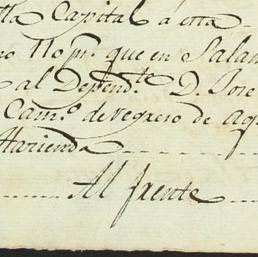 lla Capital á esta
no 110 pr. que en Salam
al Depend.te D. Jose
Cam.o de regreso de Aq
Hacienda
Al frente